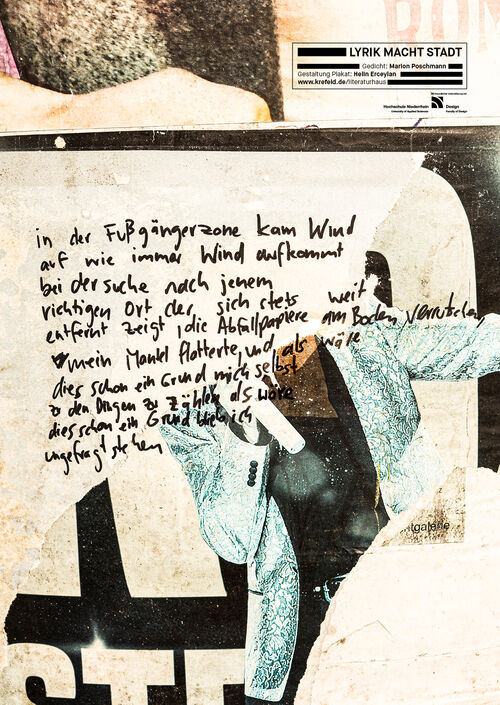 LYRIK MACHT STADT
Gedicht: Marion Poschmann
Gestaltung Plakat: Helin Erceylan
www.krefeld.de/literaturhaus
Hochschule Niederrhein
University of Applied Sciences
Design
Faculty of Design
in der Fußgängerzone kam Wind
auf wie immer Wind aufkommt
bei der suche nach jenem
richtigen Ort der sich stets weit
entfernt zeigt, die Abfallpapiere am Boden verrutschen,
mein Mantel flatterte, und als wäre
dies schon ein Grund mich selbst
zu den Dingen zu zählen als wäre
dies schon ein Grund blieb ich
ungefragt stehen
tgalerie
STE